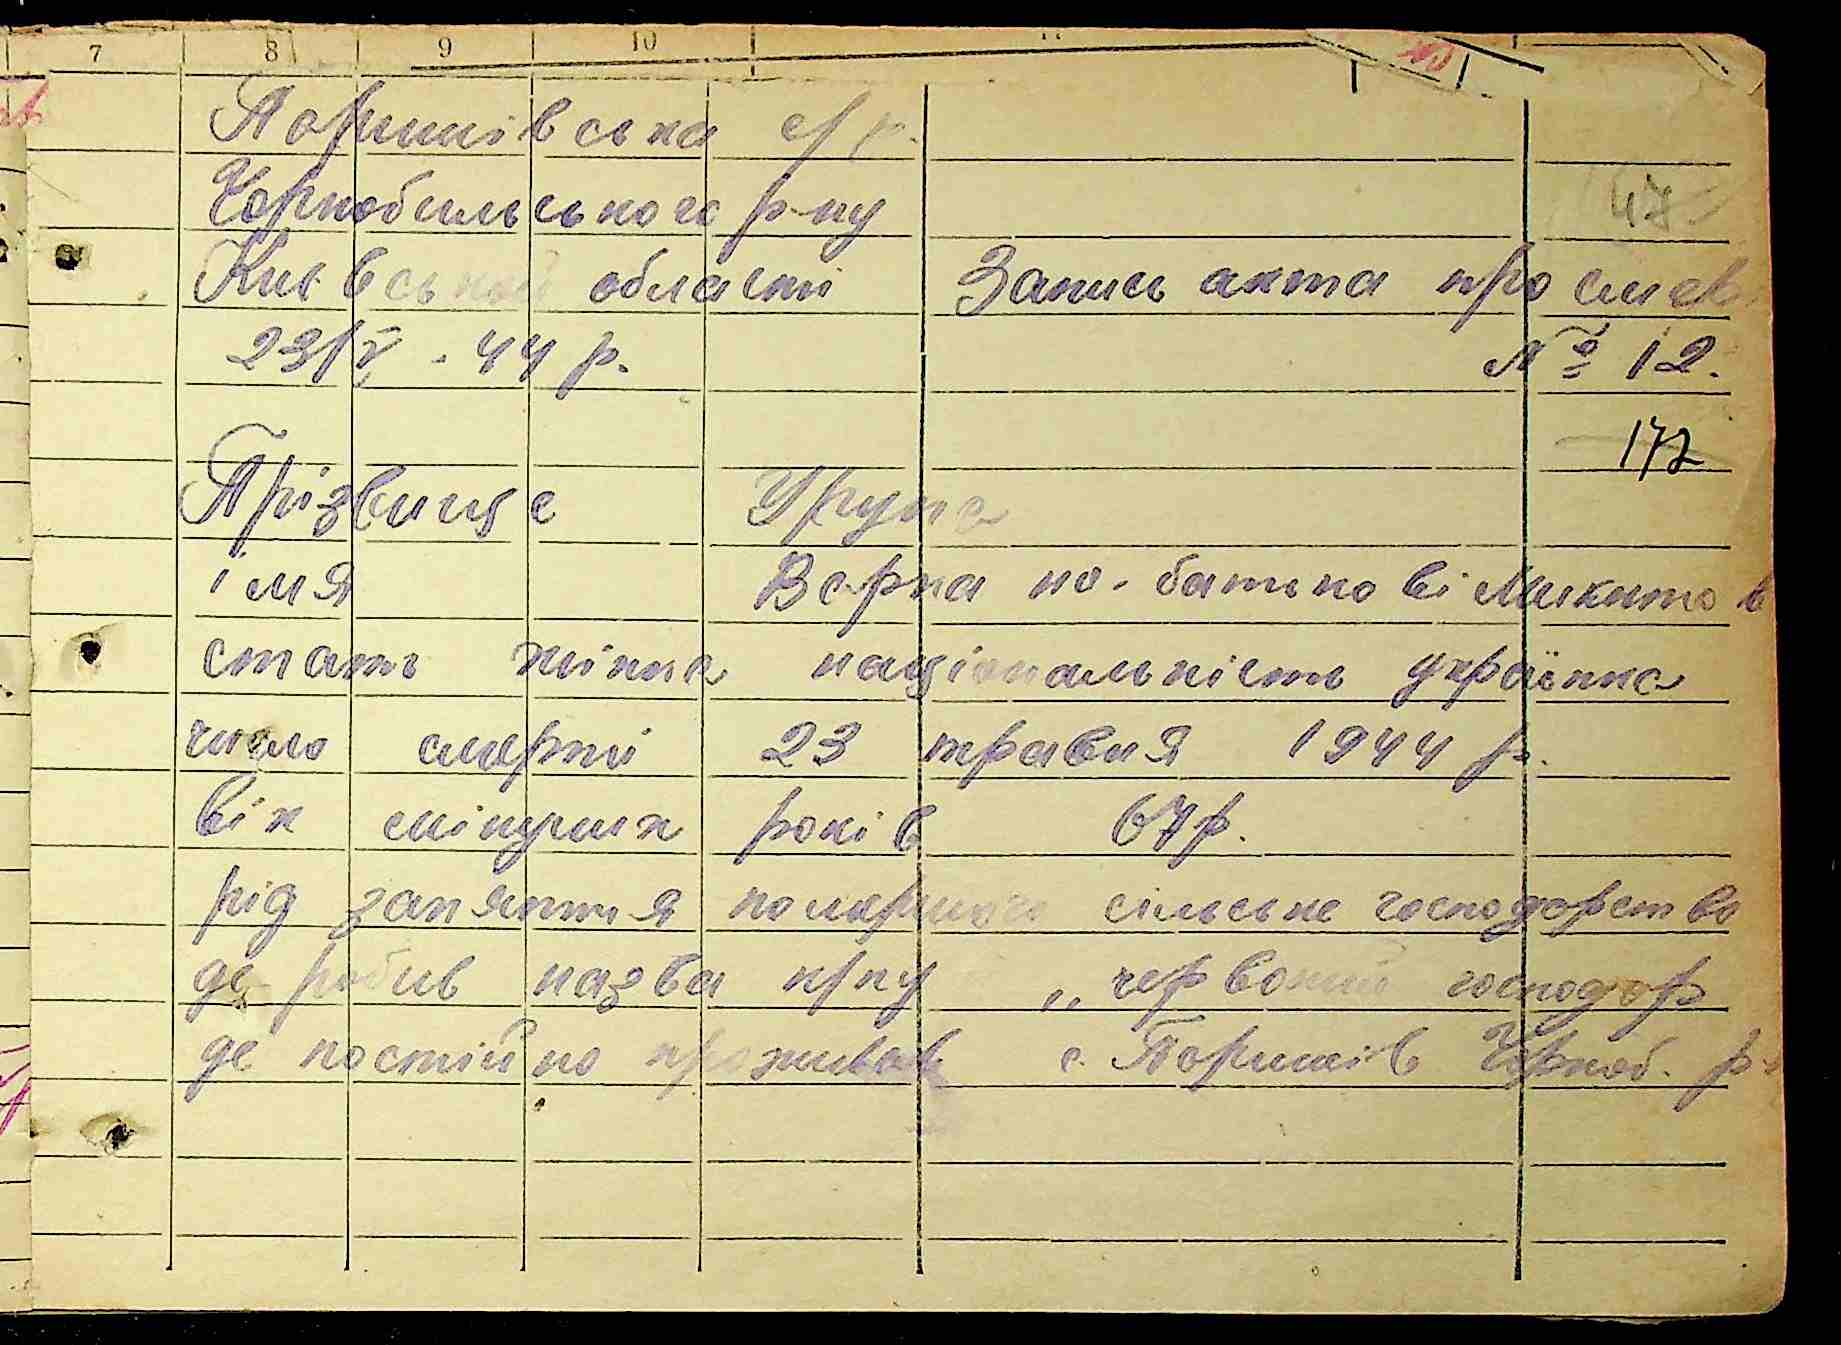 7 8 9 10
Паришівська с/р.
Чорнобильського р-ну
Київської області Запись акта про смер
23/V - 44 р. № 12.
47
172
Прізвище
імя Варка по-батькові Микитов
стать жінка національність українка
число смерті 23 травня 1944 р.
вік минувших років 67 р.
рід заняття помершого сільське господарство
де робив назва к/г-пу „червоний господар
де постійно проживав с. Паришів Чорноб. р-